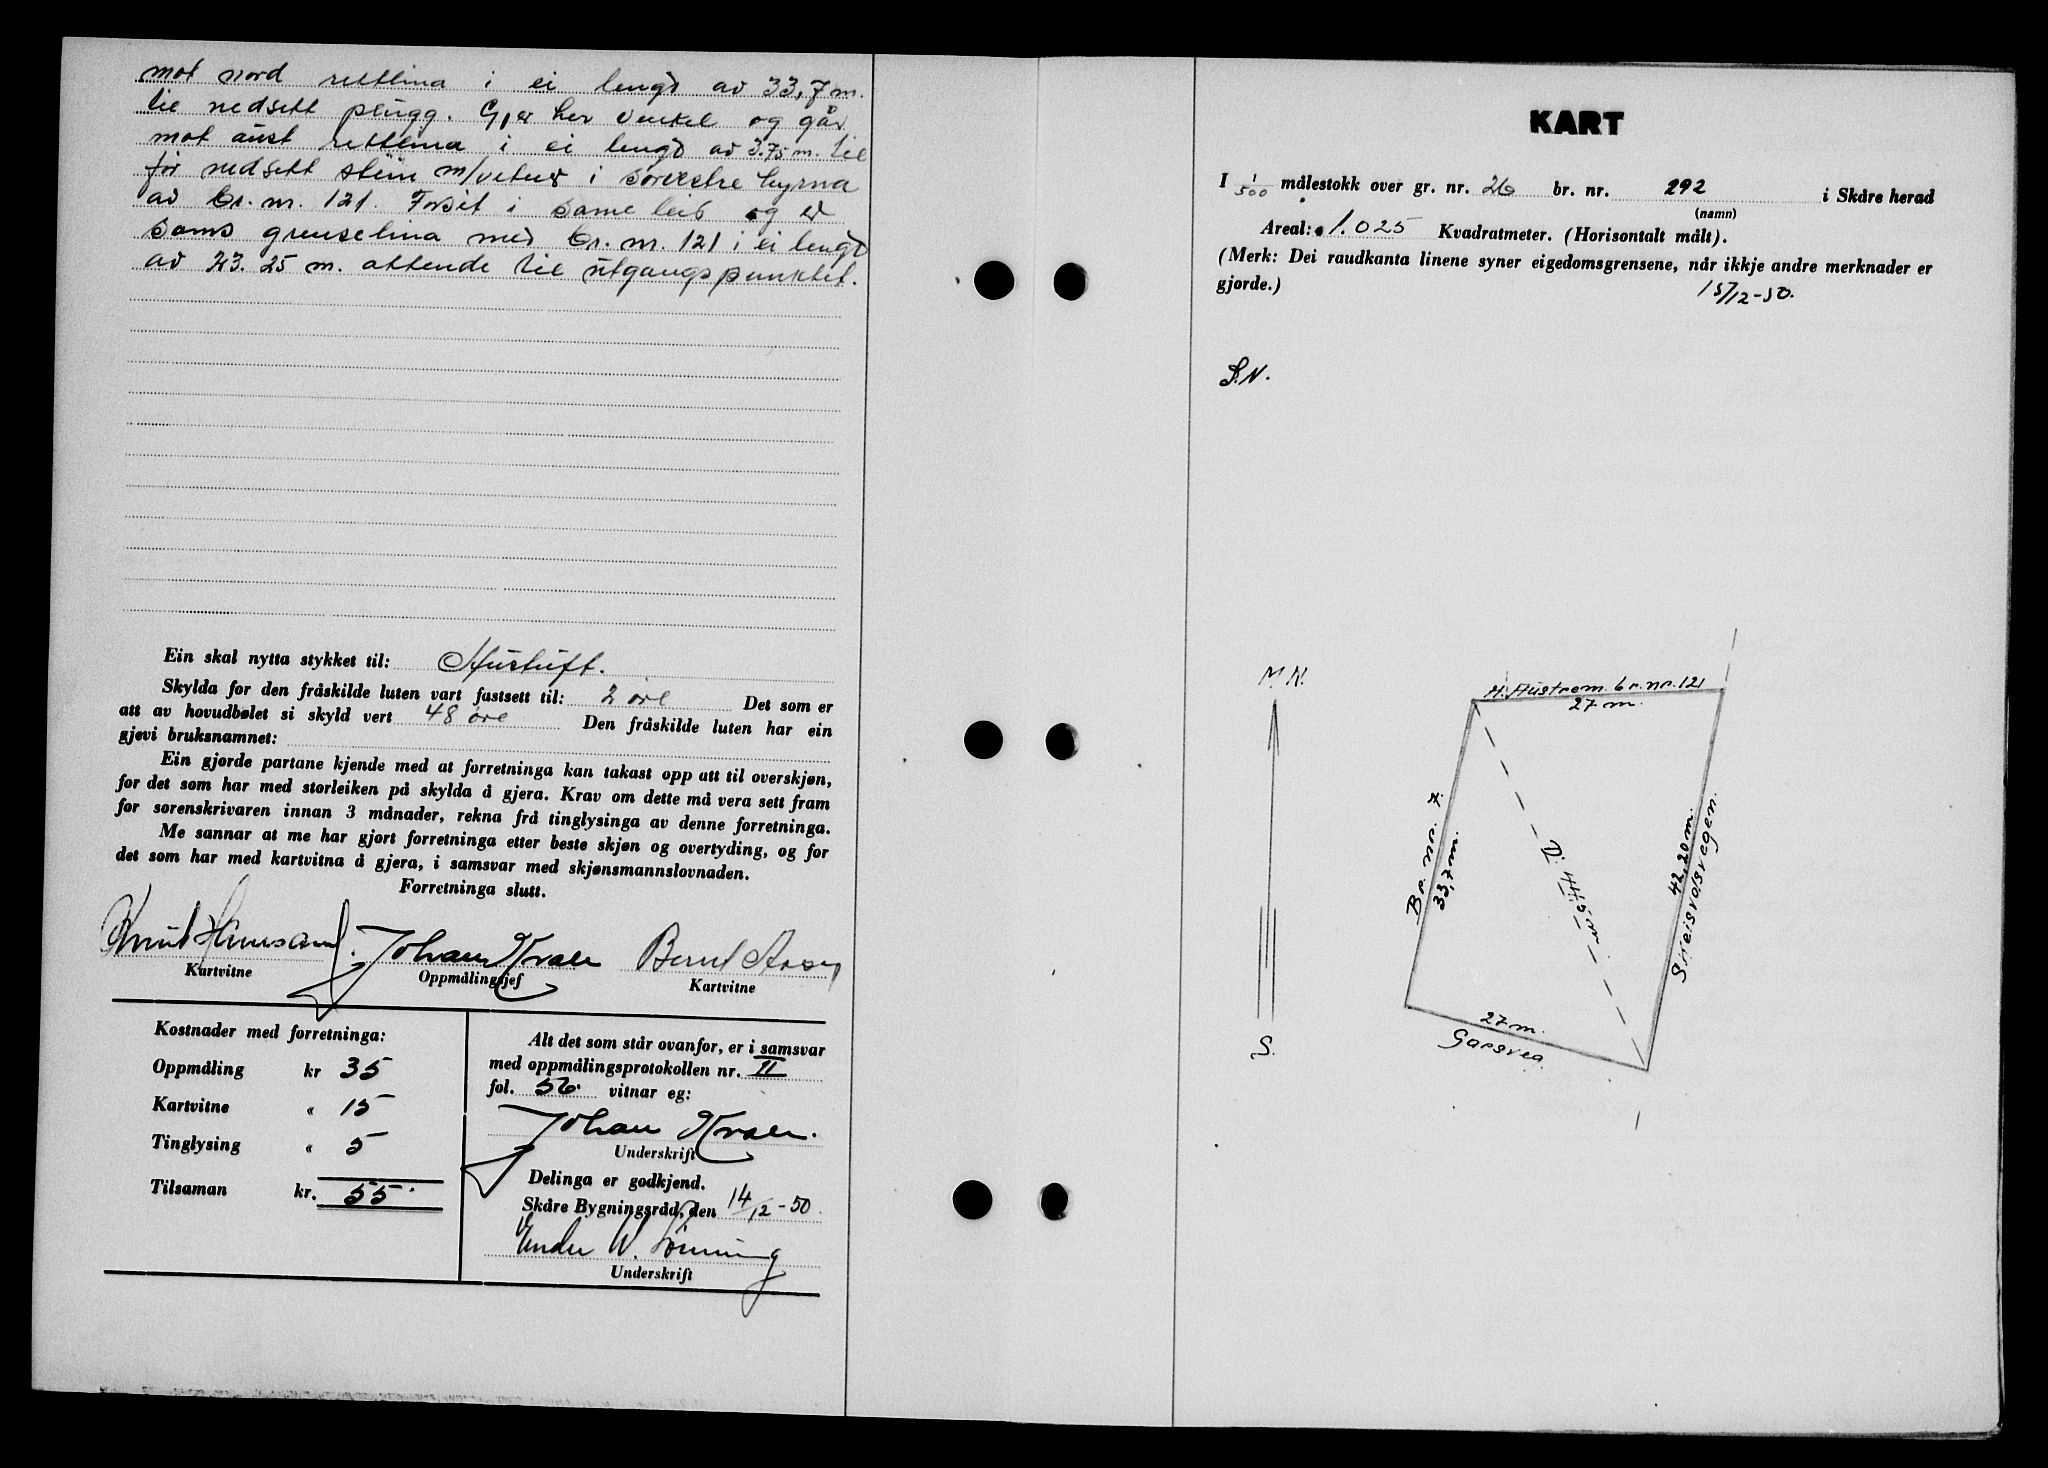 mot nord rettlina i ei lengd av 33,7 m.
til nedsett plugg. Gjer her vinkel og går
mot aust rettlina i ei lengd av 3.75 m. til
før nedsett stein m/vitner i sørvestre hyrna
av br. nr. 121. Forset i same leid og er
sams grenselina med br. nr. 121 i ei lengd
av 23.25 m. attende til utgangspunktet.
Ein skal nytta stykket til: Hustuft.
Skylda for den fråskilde luten vart fastsett til: 2 øre Det som er
att av hovudbølet si skyld vert 48 øre Den fråskilde luten har ein
gjevi bruksnamnet:
Ein gjorde partane kjende med at forretninga kan takast opp att til overskjøn,
for det som har med storleiken på skylda å gjera. Krav om dette må vera sett fram
for sorenskrivaren innan 3 månader, rekna frå tinglysinga av denne forretninga.
Me sannar at me har gjort forretninga etter beste skjøn og overtyding, og for
det som har med kartvitna å gjera, i samsvar med skjønsmannslovnaden.
Forretninga slutt.
Knut Johan Kvale Bernt
Kartvitne Oppmålingsjef Kartvitne
Kostnader med forretninga:
Oppmåling kr 35
Kartvitne " 15
Tinglysing " 5
Tilsaman kr. 55
Alt det som står ovanfor, er i samsvar
med oppmålingsprotokollen nr. II
fol. 56 vitnar eg:
Johan Kvale.
Underskrift
Delinga er godkjend.
Skåre Bygningsråd, den 14/12-50
W.
Underskrift
KART
I 1/500 målestokk over gr. nr. 26 br. nr. 292 i Skåre herad
(namn)
Areal: 1.025 Kvadratmeter. (Horisontalt målt).
(Merk: Dei raudkanta linene syner eigedomsgrensene, når ikkje andre merknader er
gjorde.)
15/12-50.
S.N.
M.N.
S.
H. Austrem. br. nr. 121
27 m.
Br. nr. 7.
33,7 m.
D. 44,6 m.
42,20 m.
Spleisvolsvegen.
27 m.
Garsvea